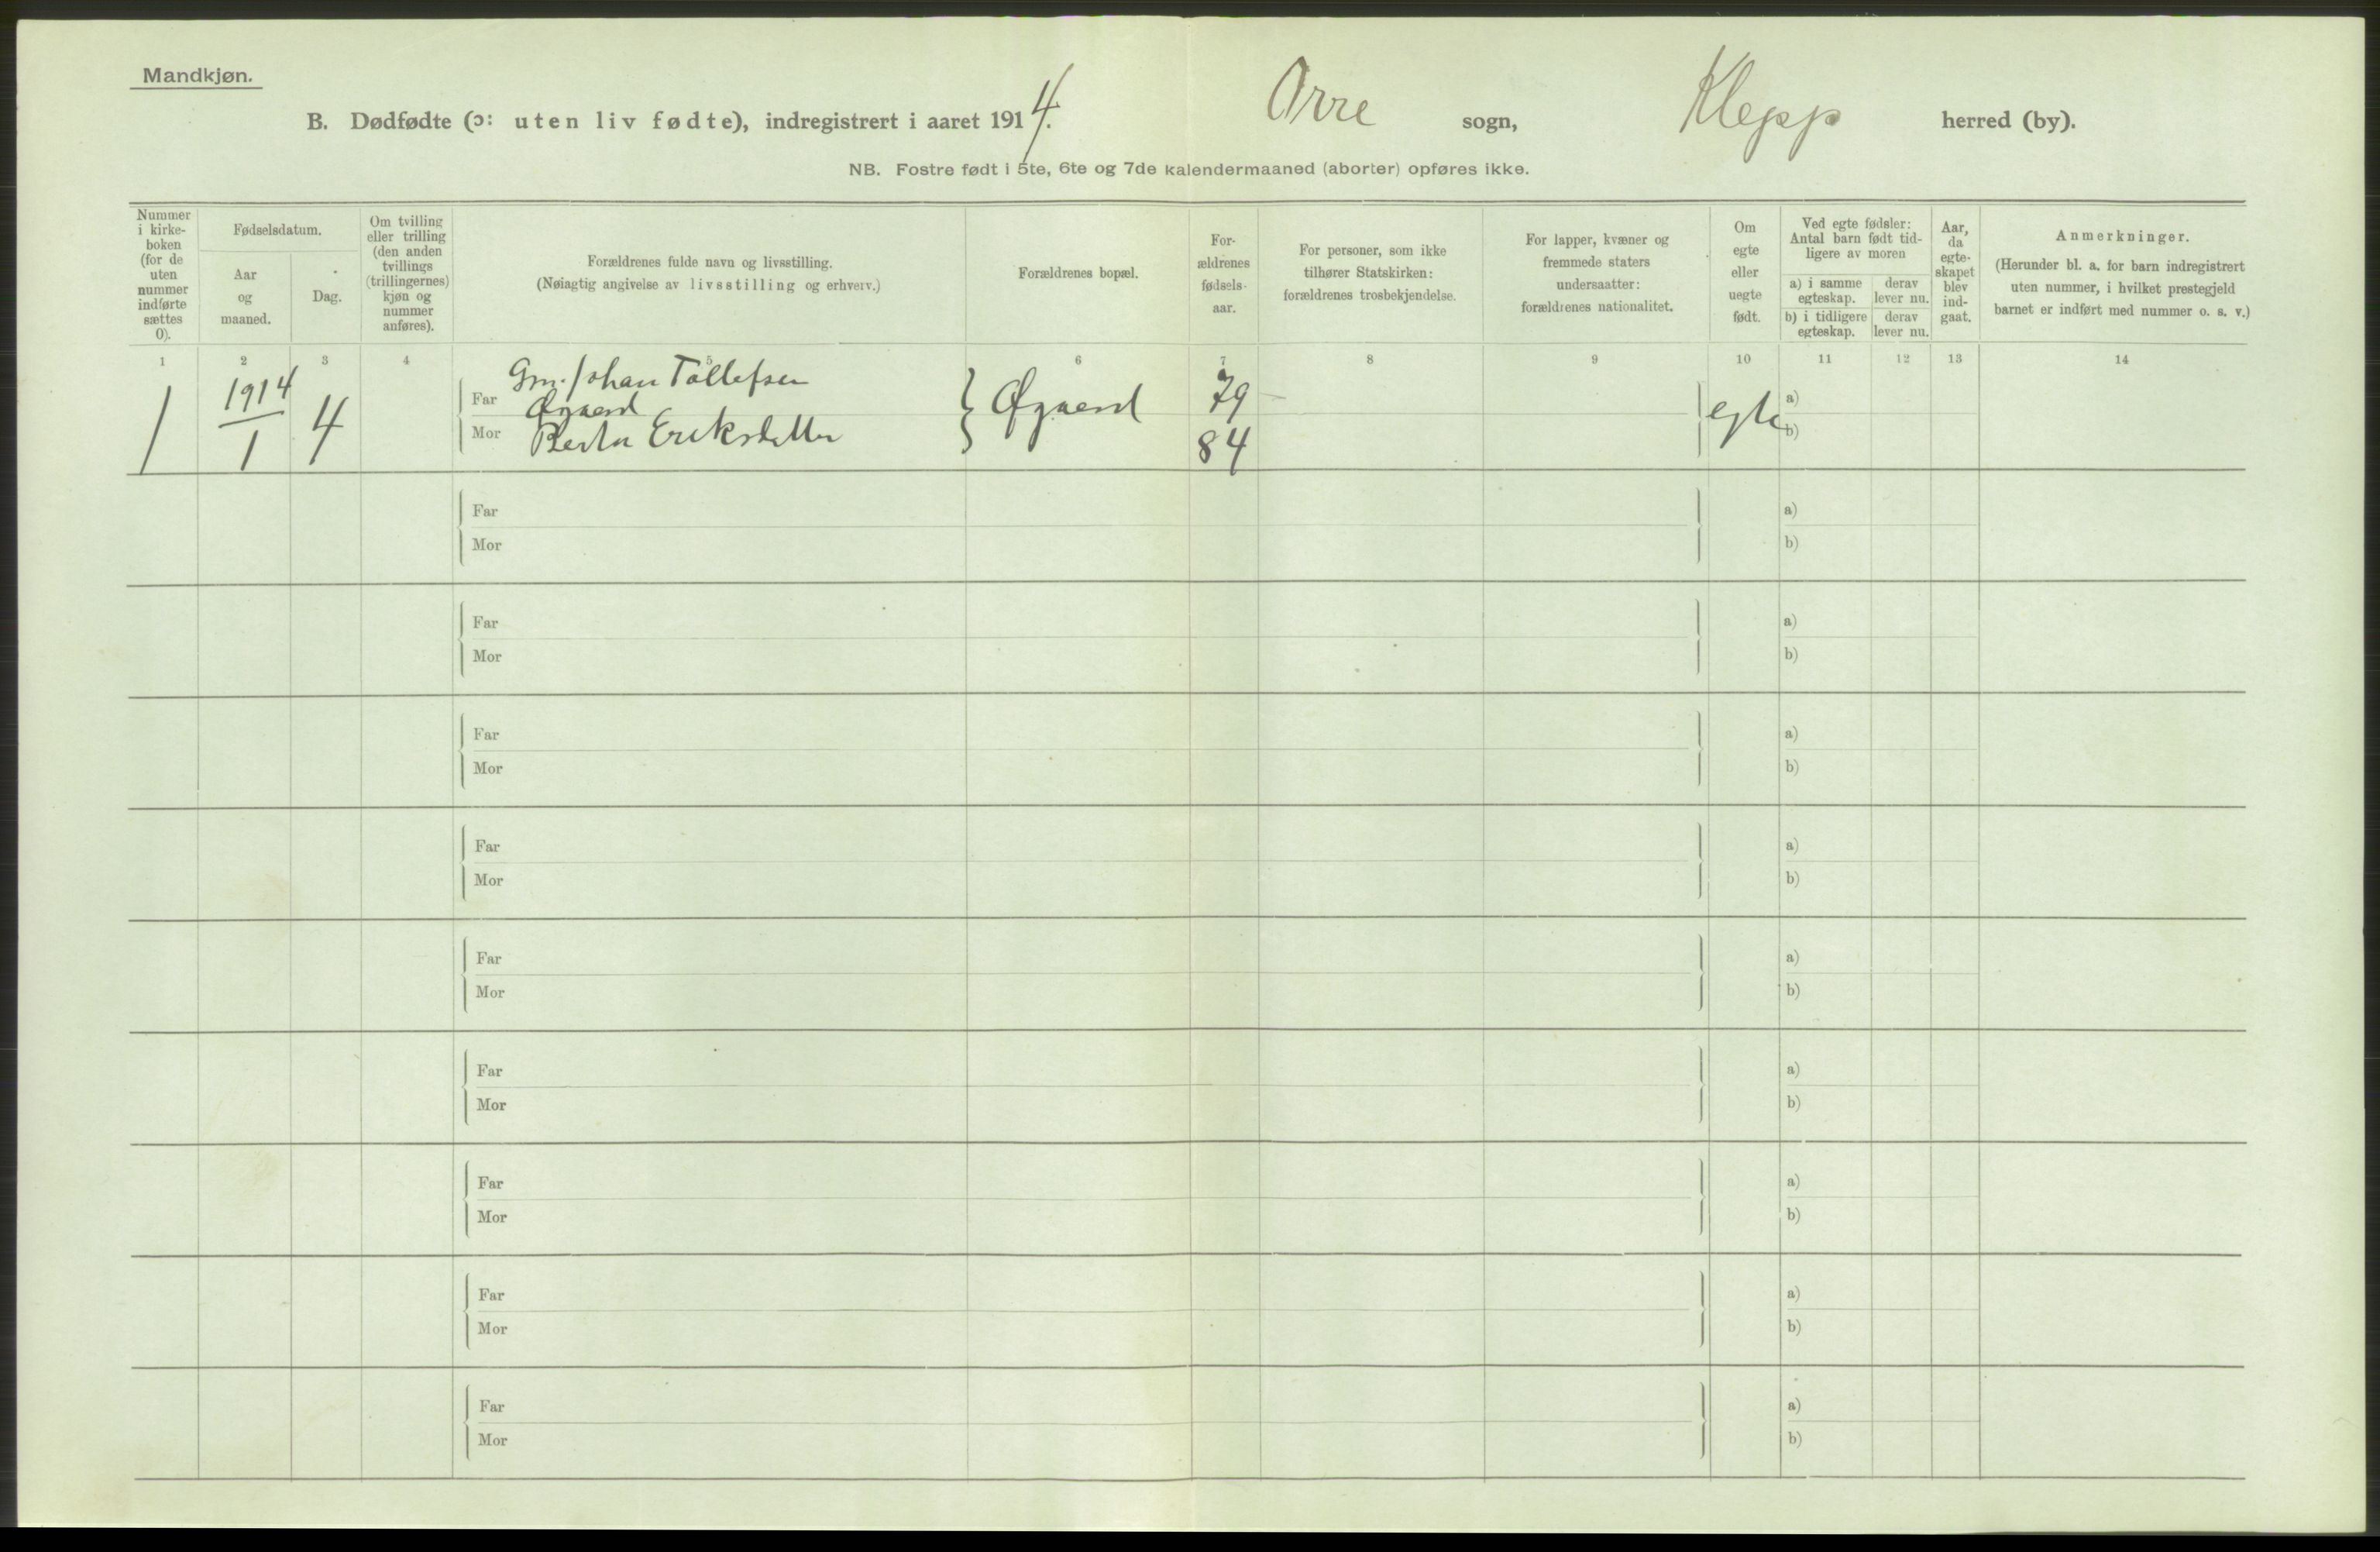 Mandkjøn.
B. Dødfødte (ɔ: uten liv fødte), indregistrert i aaret 1914. Orre sogn, Klepp herred (by).
NB. Fostre født i 5te, 6te og 7de kalendermaaned (aborter) opføres ikke.
Nummer i kirke- boken (for de uten nummer indførte sættes 0).
Fødselsdatum.
Aar og maaned.
Dag.
Om tvilling eller trilling (den anden tvillings (trillingernes) kjøn og nummer anføres).
Forældrenes fulde navn og livsstilling.
(Nøiagtig angivelse av livsstilling og erhverv.)
Forældrenes bopæl.
For- ældrenes fødsels- aar.
For personer, som ikke tilhører Statskirken: forældrenes trosbekjendelse.
For lapper, kvæner og fremmede staters undersaatter: forældrenes nationalitet.
Om egte eller uegte født.
Ved egte fødsler: Antal barn født tid- ligere av moren
a) i samme egteskap.
derav lever nu.
b) i tidligere egteskap.
derav lever nu.
Aar, da egte- skapet blev ind- gaat.
Anmerkninger.
(Herunder bl. a. for barn indregistrert uten nummer, i hvilket prestegjeld barnet er indført med nummer o. s. v.)
1 2 3 4 5 6 7 8 9 10 11 12 13 14
1 1914/1 4
Far Gm. Johan Tollefsen Øgaard
Mor Berta Eriksdatter
Øgaard
79
84
egte
a)
b)
Far
Mor
a)
b)
Far
Mor
a)
b)
Far
Mor
a)
b)
Far
Mor
a)
b)
Far
Mor
a)
b)
Far
Mor
a)
b)
Far
Mor
a)
b)
Far
Mor
a)
b)
Far
Mor
a)
b)